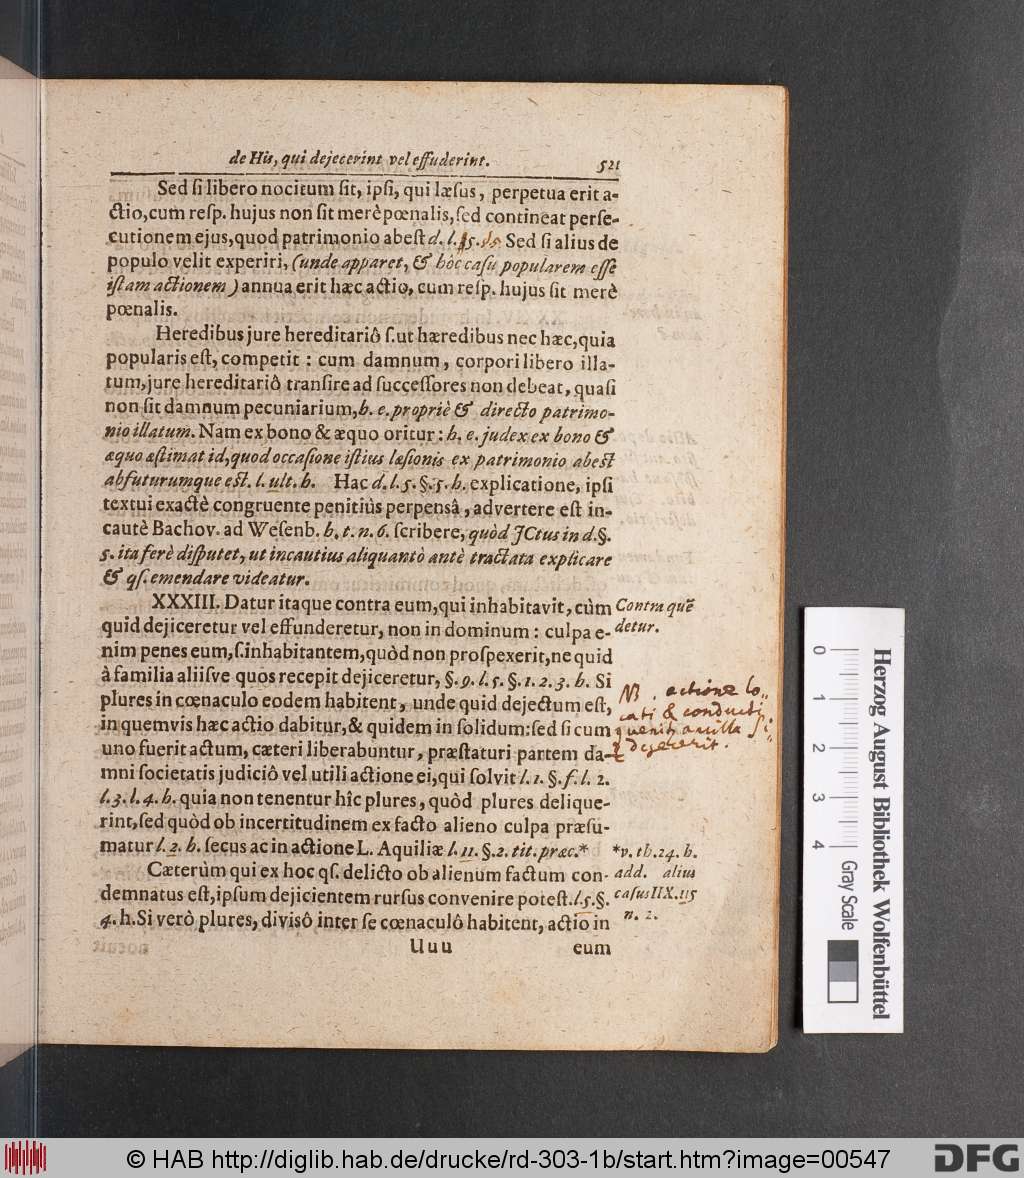 de His, qui dejecerint vel effuderint. 521
Sed ſi libero nocitum ſit, ipſi, qui læſus, perpetua erit a-
ctio, cum reſp. hujus non ſit merè pœnalis, ſed contineat perſe-
cutionem ejus, quod patrimonio abeſt d. l. 5. Sed ſi alius de
populo velit experiri, (unde apparet, & hôc caſu popularem eſſe
iſtam actionem) annua erit hæc actio, cum reſp. hujus ſit merè
pœnalis.
Heredibus jure hereditariô ſ. ut hæredibus nec hæc, quia
popularis eſt, competit: cum damnum, corpori libero illa-
tum, jure hereditariô tranſire ad ſucceſſores non debeat, quaſi
non ſit damnum pecuniarium, h. e. propriè & directo patrimo-
nio illatum. Nam ex bono & æquo oritur: h. e. judex ex bono &
æquo æſtimat id, quod occaſione iſtius læſionis ex patrimonio abeſt
abfuturumque eſt. l. ult. h. Hac d. l. 5. §. 5. h. explicatione, ipſi
textui exactè congruente penitiùs perpensâ, advertere eſt in-
cautè Bachov. ad Weſenb. h. t. n. 6. ſcribere, quòd JCtus in d. §.
5. ita ferè diſputet, ut incautius aliquantò antè tractata explicare
& qſ. emendare videatur.
XXXIII. Datur itaque contra eum, qui inhabitavit, cùm
quid dejiceretur vel effunderetur, non in dominum: culpa e-
nim penes eum, ſ. inhabitantem, quòd non proſpexerit, ne quid
à familia aliiſve quos recepit dejiceretur, §. 9. l. 5. §. 1. 2. 3. h. Si
plures in cœnaculo eodem habitent, unde quid dejectum eſt,
in quemvis hæc actio dabitur, & quidem in ſolidum: ſed ſi cum
uno fuerit actum, cæteri liberabuntur, præſtaturi partem da-
mni ſocietatis judiciô vel utili actione ei, qui ſolvit l. 1. §. f. l. 2.
l. 3. l. 4. h. quia non tenentur hîc plures, quòd plures delique-
rint, ſed quòd ob incertitudinem ex facto alieno culpa præſu-
matur l. 2. h. ſecus ac in actione L. Aquiliæ l. 11. §. 2. tit. præc.*
Cæterùm qui ex hoc qſ. delicto ob alienum factum con-
demnatus eſt, ipſum dejicientem rurſus convenire poteſt. l. 5. §.
4. h. Si verò plures, diviſô inter ſe cœnaculô habitent, actio in
Uuu eum
Contra quē
detur.
NB. actione lo-
cati & conducti
ancilla
dejecerit.
*v. th. 24. h.
add. alius
caſus IIX. 115
n. 2.
0
1
2
3
4
Gray Scale
Herzog August Bibliothek Wolfenbüttel
© HAB http://diglib.hab.de/drucke/rd-303-1b/start.htm?image=00547
DFG